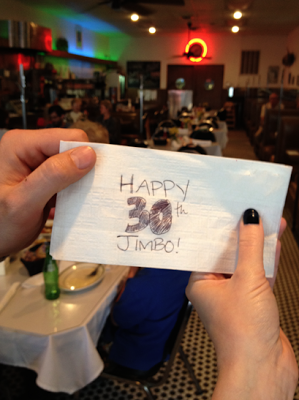 HAPPY
30th
JIMBO!